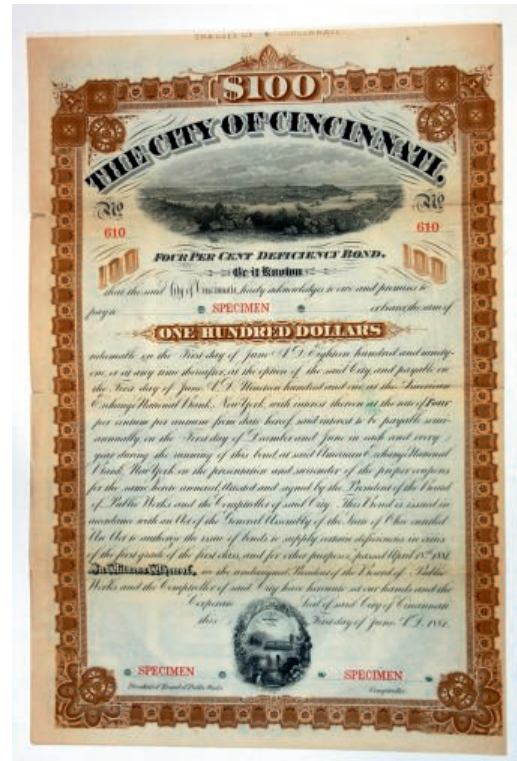 THE CITY OF CINCINNATI
$100
THE CITY OF CINCINNATI.
No No
610 610
100 100
FOUR PER CENT DEFICIENCY BOND.
Be it Known
that the said City of Cincinnati, hereby acknowledges to owe and promises to
pay to SPECIMEN or bearer, the sum of
ONE HUNDRED DOLLARS
redeemable on the First day of June A.D. Eighteen hundred and ninety-
one, or at any time thereafter, at the option of the said City, and payable on
the First day of June A.D. Nineteen hundred and one at the American
Exchange National Bank, New York, with interest thereon at the rate of Four
per centum per annum from date hereof, said interest to be payable semi-
annually on the First day of December and June in each and every
year during the running of this bond, at said American Exchange National
Bank, New York on the presentation and surrender of the proper coupons
for the same hereto annexed, attested and signed by the President of the Board
of Public Works and the Comptroller of said City. This Bond is issued in
accordance with an Act of the General Assembly of the State of Ohio entitled
An Act to authorize the issue of bonds to supply certain deficiencies in cities
of the first grade of the first class, and for other purposes, passed April 18th 1881.
In Witness Whereof, we the undersigned, President of the Board of Public
Works and the Comptroller of said City have hereunto set our hands and the
Corporate Seal of said City of Cincinnati
this First day of June A.D. 1881.
SPECIMEN SPECIMEN
President of Board of Public Works. Comptroller.